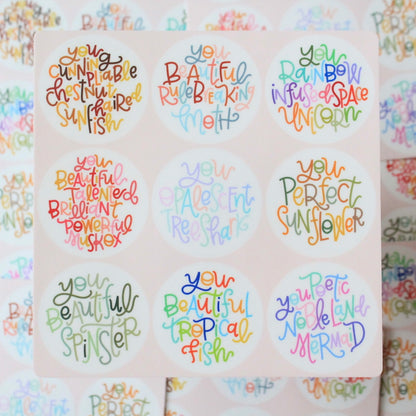 you
CUNNING
PLIABLE
CHESTNUT
HAIRED
SUNFISH
you
BEAUTIFUL
RULE BREAKING
MOTH
you
RAINBOW
INFUSED SPACE
UNICORN
you
BEAUTIFUL
TALENTED
BRILLIANT
POWERFUL
MUSKOX
you
OPALESCENT
TREE SHARK
you
PERFECT
SUNFLOWER
you
BEAUTIFUL
SPINSTER
you
BEAUTIFUL
TROPICAL
FISH
you POETIC
NOBLE LAND
MERMAID